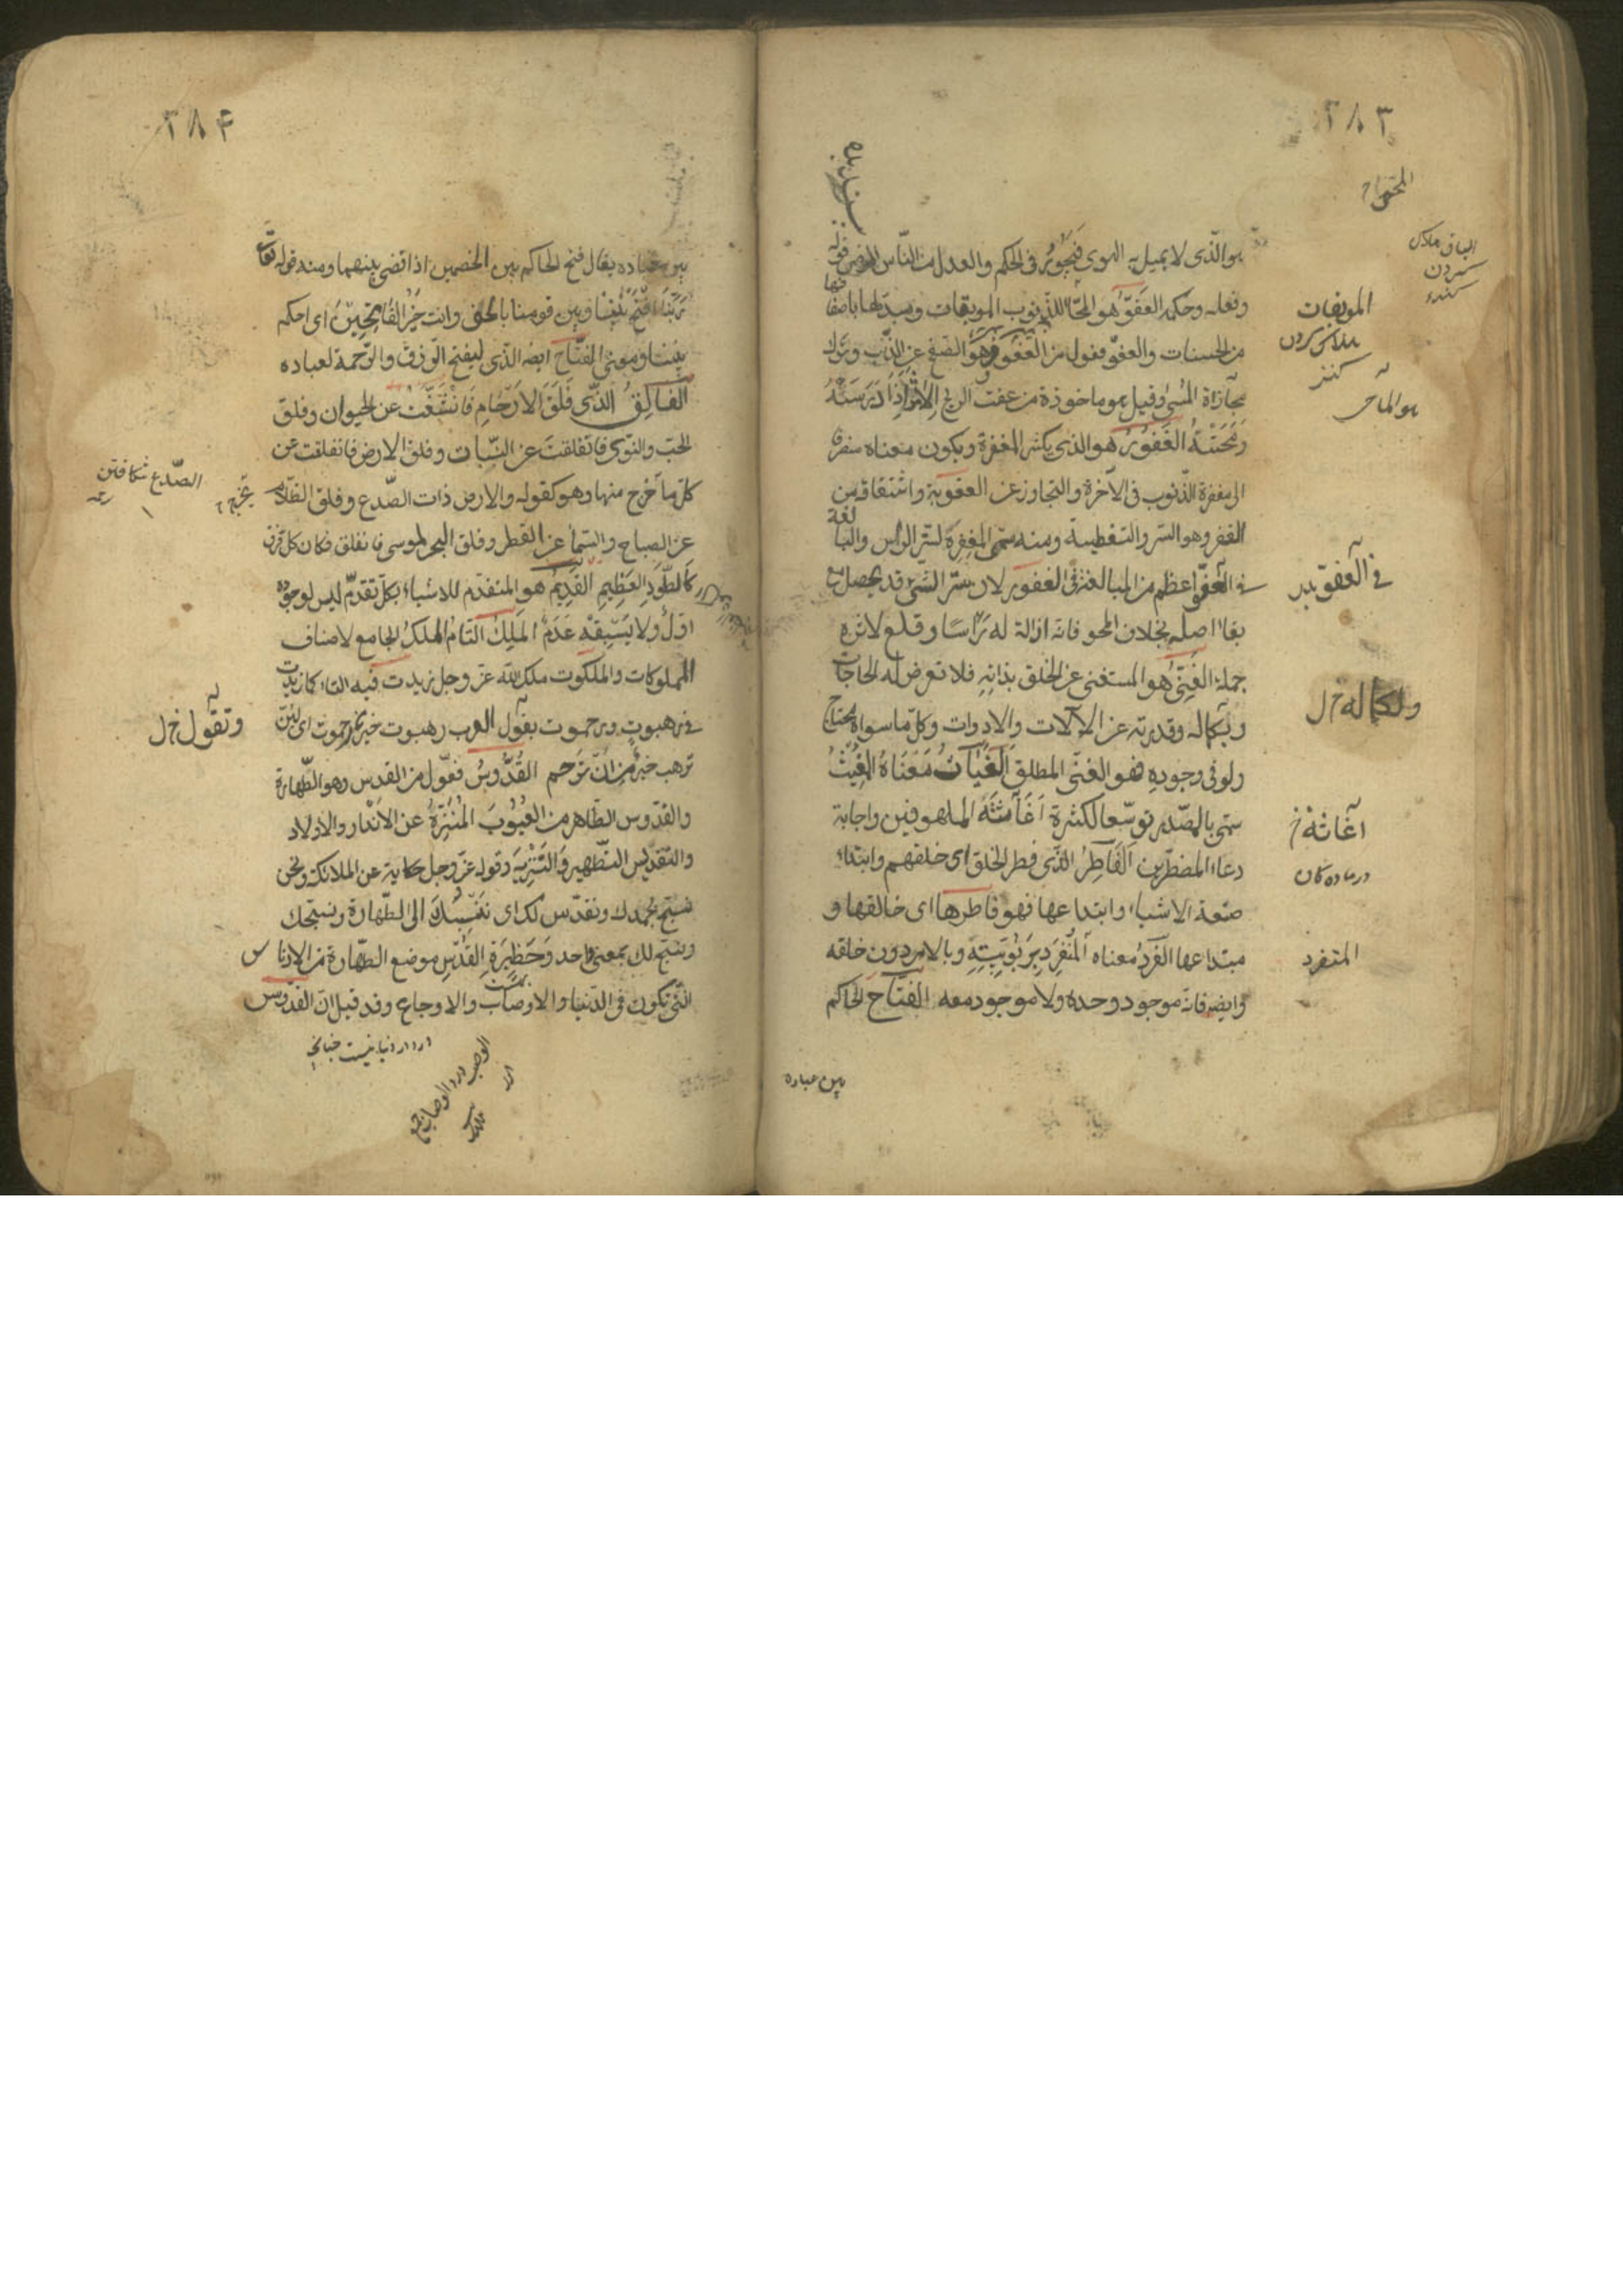 ٢٨٣
هو الّذى لا يميل به الهوى فَيَجُورُ فى الحكم والعدل من النّاس المرضى قوله
وفعله وحكمه العَفُوُّ هو المحّاء للذّنوب الموبقات ومبدّلها باضعافها
من الحسنات والعفوّ فعول من العَفْوِ وهَوَ الصّفح عن الذّنب وترك
مجازاة المسئ وقيل هو ماخوذة من عفت الريح الاَثَرَ اِذَا دَرَسَتْهُ
وَمَحَتْهُ الغَفُورُ هو الذى يكثر المغفرة ويكون معناه منصرفا
الى مغفرة الذّنوب فى الآخرة والتجاوز عن العقوبة واشتقاقه من
الغفر وهو السّتر والتغطية ومنه سمّى المِغفَر لستر الرأس والمبالغة
فى العفوّ اعظم من المبالغة فى الغفور لان ستر الشئ قد يحصل مع
بقاء اصله بخلاف المحو فانه ازالة له رَأسًا وقلع لاثره
جملة الغَنِىُّ هو المستغنى عن الخلق بذاتِهِ فلا تعرض له الحاجات
وبكماله وقدرته عن الآلات والادوات وكلّ ما سواه محتاج
ولو فى وجودهِ فهو الغنّى المطلق الغَيَاثُ مَعْنَاهُ المغِيْثُ
سمّى بالمصدر توسّعا لكثرة اَغَاثَتَهُ الملهوفين واجابة
دعاء المضطرّين الفَاطِرُ الّذى فطر الخلق اى خلقهم وابتداء
صنعة الاشياء وابتداعها فهو فاطرها اى خالقها و
مبتداعها الفَرْدُ معناه المُنْفَرِد بِرَبُوبِيَّتِهِ وبالامر دون خلقه
وايضا فانّه موجود وحده ولا موجود معه الفَتّاح الحاكم
بين عباده
الموبقات
هلاك كردن
هو الماحى
فى العفو بدر
ولكماله خ ل
اغاثة خ
درمانده كان
المتفرد
٢٨۴
بين عباده يقال فتح الحاكم بين الخصمين اذا قضى بينهما ومنه قوله تعالى
رَبَّنَا افْتَحْ بَيْنَنَا وبين قومنا بالحق وانت خَيْرُ الفَاتِحِيْنَ اى احكم
بيننا ومعنى الفتّاح ايضا الذّى ليفتح الرّزق والرّحمة لعباده
الفَالِقُ الذّى فَلَقَ الاَرْحَامِ فَانْشَقَّتْ عن الحيوان وفلق
الحبّ والنّوى فانفلقت عن النّبات وفلق الارض فانفلقت عن
كلّ ما خرج منها وهو كقوله والارض ذات الصّدع وفلق الظّلام
عن الصباح والسّماء عن القطر وفلق البحر لموسى فانفلق فكان كل فرق
كَالطَّوْدِ العَظِيمِ القَدِيمُ هو المتقدّم للاشياء بكلّ تقدّم ليس لوجوده
اوّلٌ ولا يَسْبِقُهُ عَدَمٌ المَلِكُ التَّامُ المُلكُ الجامع لاصناف
المملوكات والملكوت ملك الله عزّ وجل زيدت فيه التاء كما زيدت
فى رهبوت ورحموت يقول العرب رهبوت خير من رحموت اى لئن
ترهب خير من ان ترحم القُدُّوسُ فعّول من القدس وهو الطّهارة
والقدّوس الطّاهر من العُيُوبِ المُنَزَّهُ عن الاَنْدَاد والاولاد
والتقديس التّطهير وَالتَّنْزِيْهُ وقوله عزّ وجل حكاية عن الملائكة ونحن
نسبّح بحمدك ونقدّس لك اى نَنْسِبُكَ الى الطّهارة ونسبّحك
ونسبّح لك بمعنى واحد وَحَظِيرَةُ القُدْسِ موضع الطّهارة من الادناس
الّتى تكون فى الدّنيا والاوصَاب والاوجاع وقد قيل انّ القدّوس
الصّدع شكافتن
وتقول خ ل